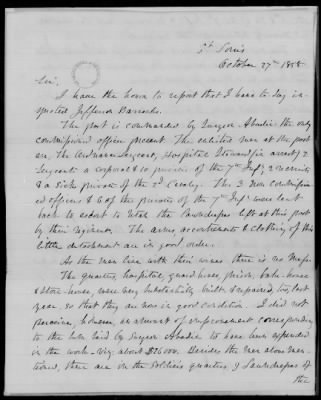 St Louis
October 27th 1858
Sir,
I have the honor to report that I have to day in-
spected Jefferson Barracks.
The post is commanded by Surgeon Abadie the only
commissioned officer present. The enlisted men at the post
are, the Ordnance Sergeant, Hospital Steward (in arrest) 2
Sergeants a corporal & 10 privates of the 7th Infy, 2 recruits
& a sick private of the 2d Cavalry. The 3 non commission-
ed officers & 6 of the privates of the 7th Infy were sent
back to escort to Utah the Laundresses left at this post
by their regiment. The arms, accoutrements & clothing of this
little detachment are in good order.
As the men live with their wives there is no mess.
The quarters, hospital, guard house, prison, bake-house
& store-house, were very substantially built, & repaired, two, last
year, so that they are now in good condition. I did not
perceive, however, an amount of improvement corresponding
to the sum said by Surgeon Abadie to have been expended
in the work - viz, about $20000. Besides the men above men-
tioned, there are in the soldiers quarters 9 Laundresses of
the